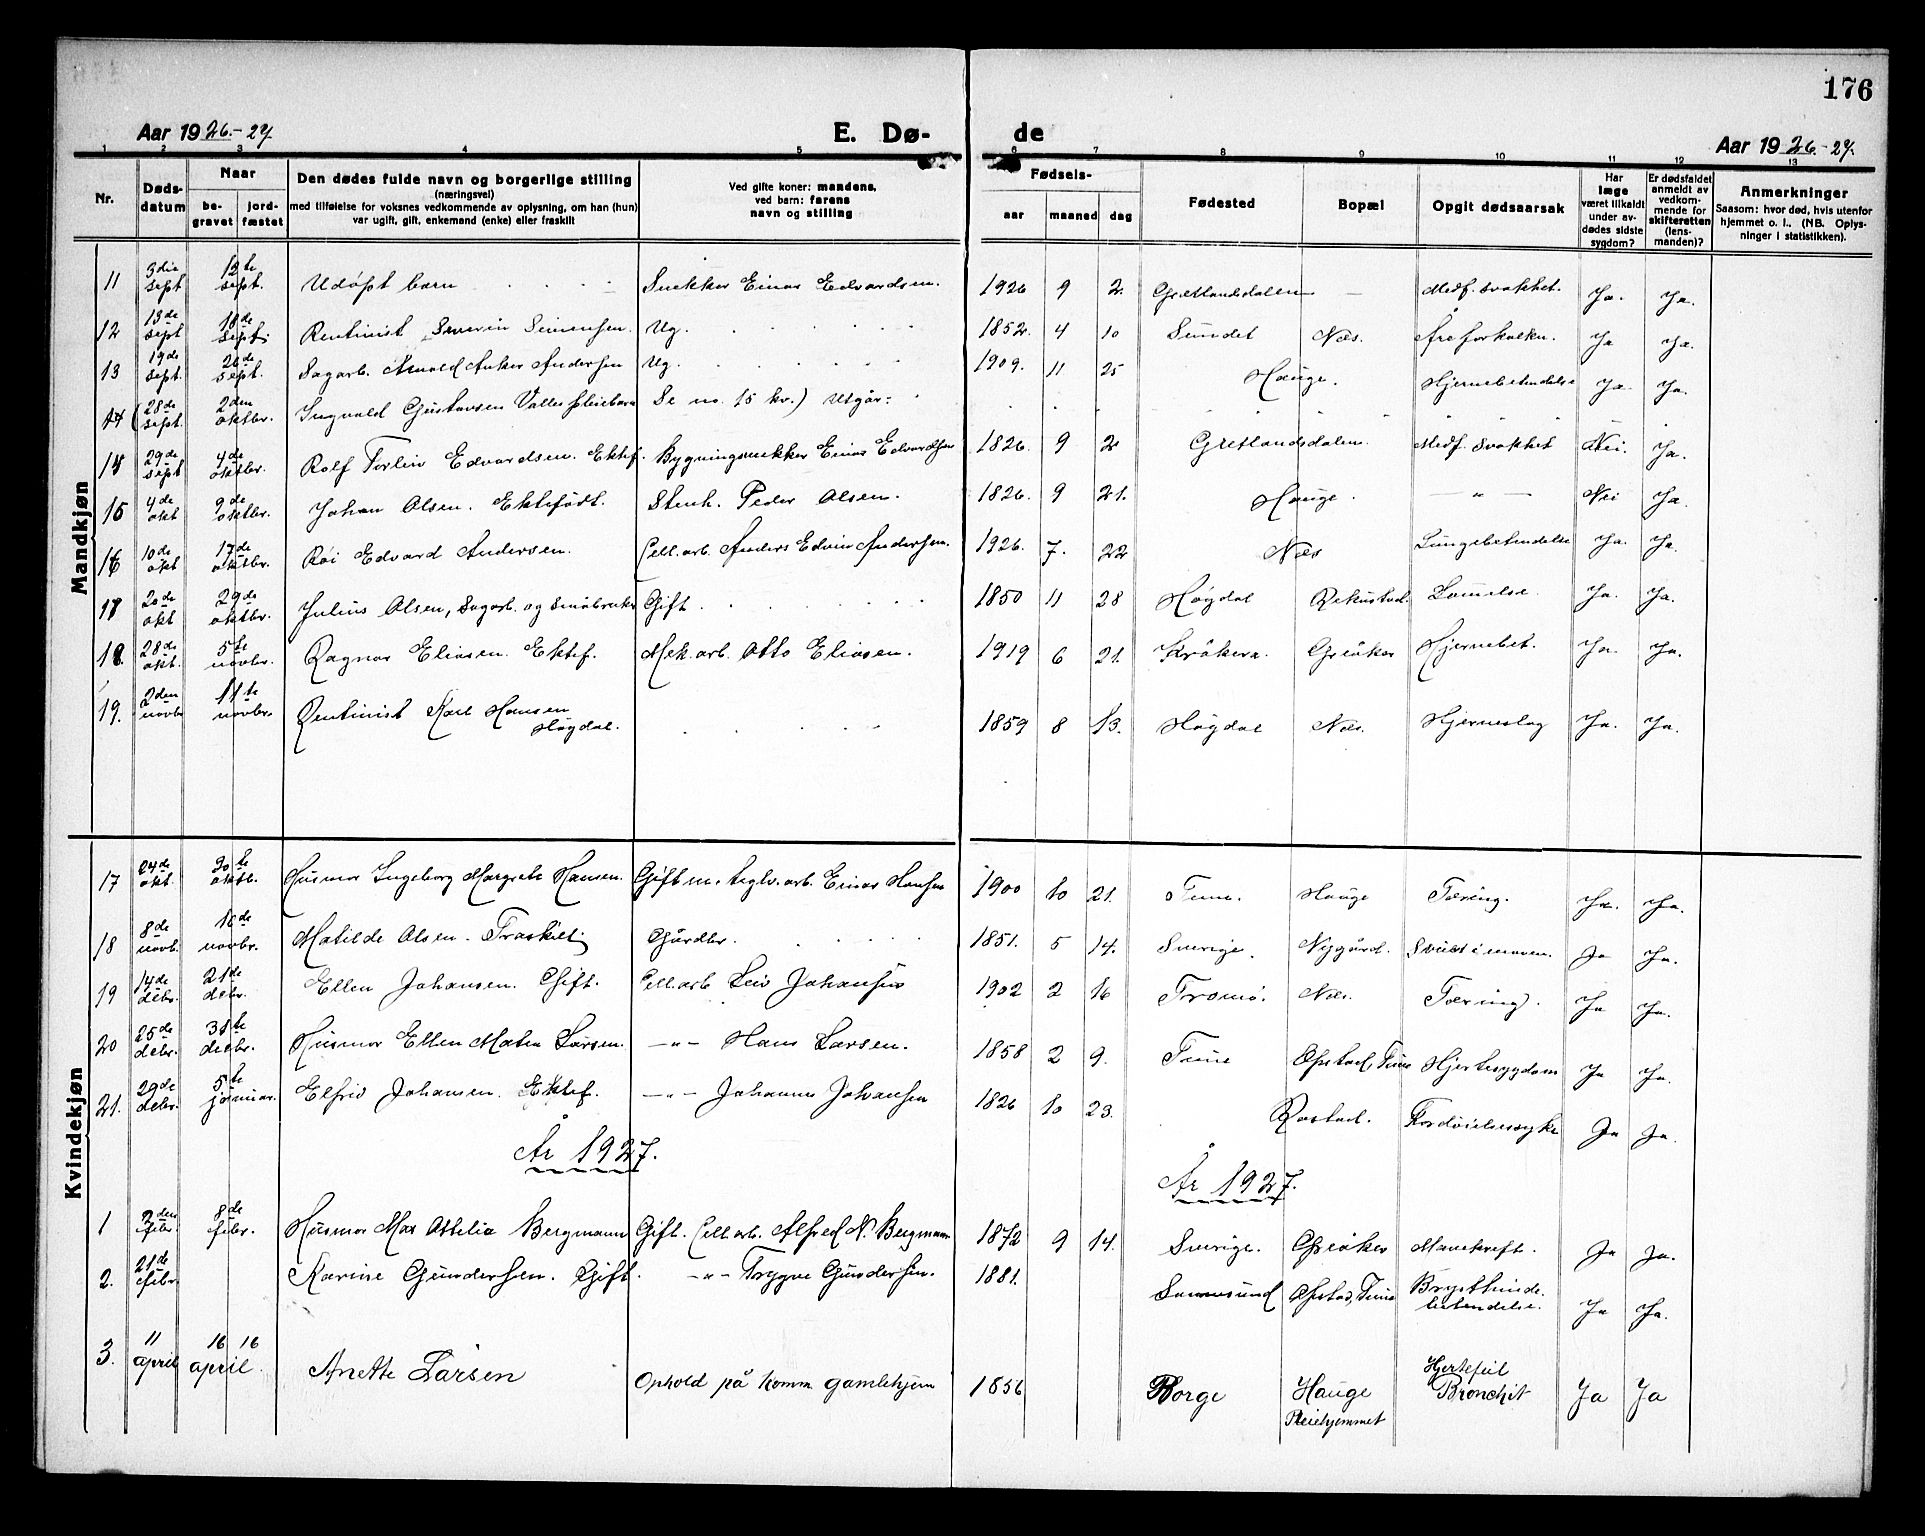 176
Aar 1926.-27. E. Dø- de Aar 1926.-27.
1 2 3 4 5 6 7 8 9 10 11 12 13
Nr. Døds-datum Naar begravet jordfæstet Den dødes fulde navn og borgerlige stilling (næringsvei) med tilføielse for voksnes vedkommende av oplysning, om han (hun) var ugift, gift, enkemand (enke) eller fraskilt Ved gifte koner: mandens, ved barn: farens navn og stilling Fødsels- aar maaned dag Fødested Bopæl Opgit dødsaarsak Har læge været tilkaldt under avdødes sidste sygdom? Er dødsfaldet anmeldt av vedkommende for skifteretten (lensmanden)? Anmerkninger Saasom: hvor død, hvis utenfor hjemmet o. l.. (NB. Oplysninger i statistikken).
Mandkjøn
11 3die sept 12te sept. Udøpt barn Snekker Einar Edvardsen. 1926 9 2. Gretlandsdalen — Medf. svakhet. Ja. Ja.
12 13de sept 18de sept. Rentinist Severin Simensen. Ug. 1852. 4 10 Sundet Næs. Åreforkalkn. Ja Ja.
13 19de sept. 26de sept. Sagarb. Arnold Anker Andersen Ug. 1909. 11 25 Hauge. Hjernebetendelse Ja. Ja.
14 (28de sept. 2den oktbr. Ingvald Gustavsen Valles pleiebarn Se no. 15 kv.) Utgår:
14 29de sept 4de oktbr. Rolf Torleiv Edvardsen. Ektef. Bygningsnekker Einar Edvardsen 1826. 9 2 Gretlandsdalen. Medf. svakhet Nei. Ja.
15 4de okt 9de oktbr. Johan Olsen. Ektefødt. Stenh. Peder Olsen. 1826. 9 21. Hauge. — " — Nei Ja.
16 10de okt 17de oktbr. Roi Edvard Andersen. Cell. arb. Anders Edvin Andersen. 1926. 7. 22 Næs Lungebetendelse Ja. Ja.
17 20de okt 29de oktbr. Julius Olsen, Sagarb. og Småbruker Gift. 1850 11 28 Høgdal Rekustad. Lamelse. Ja. Ja.
18. 28de okt. 5te novbr. Ragnar Eliasen. Ektef. Mek. arb. Otto Eliasen. 1919 6 21. Kråkerø. Greåker Hjernebet. Ja. Ja.
19. 2den novbr 11te novbr. Rentinist Karl Hansen
Høgdal. 1859 8 13. Høgdal Næs. Hjerneslag Ja. Ja.
Kvindekjøn
17 24de okt. 30te oktb. Husmor Ingeborg Margrete Hansen. Gift m. teglv. arb. Einar Hansen 1900 10 21. Tune. Hauge Tæring. Ja. Ja.
18 8de novb. 16de novbr. Matilde Olsen. Fraskilt Gårdbr. 1851. 5 14. Sverige. Nygård. Svulst i maven. Ja Ja.
19 14de debr. 21de debr. Ellen Johansen. Gift. Cell. arb Leiv Johansen 1902 2 16 Tromø. Næs. Tæring. Ja Ja.
20 25de debr. 31te debr. Husmor Ellen Matea Larsen. — " — Hans Larsen. 1858 2 9. Tune Opstad, Tune Hjertesygdom Ja Ja.
21. 29de debr. 5te januar. Elfrid Johansen. Ektef. — " — Johannes Johansen 1826 10 23. Rostad. Fordøielsessyke Ja Ja.
År 1927. År 1927.
1 2den febr. 8de febr. Husmor Max Ottelia Bergmann Gift. Cell. arb. Alfred N. Bergmann 1872 9 14. Sverige. Greåker Mavekreft. Ja Ja.
2. 21de febr Karine Gundersen. Gift. — " — Trygve Gundersen. 1881. Sannesund Opstad, Tune Brysthinde-
betendelse. Ja Ja.
3. 11 april 16 16 april. Anette Larsen Ophold på komm gamlehjem 1856 Borge Hauge Pleiehjemmet Hjertefeil
Bronchit Ja Ja